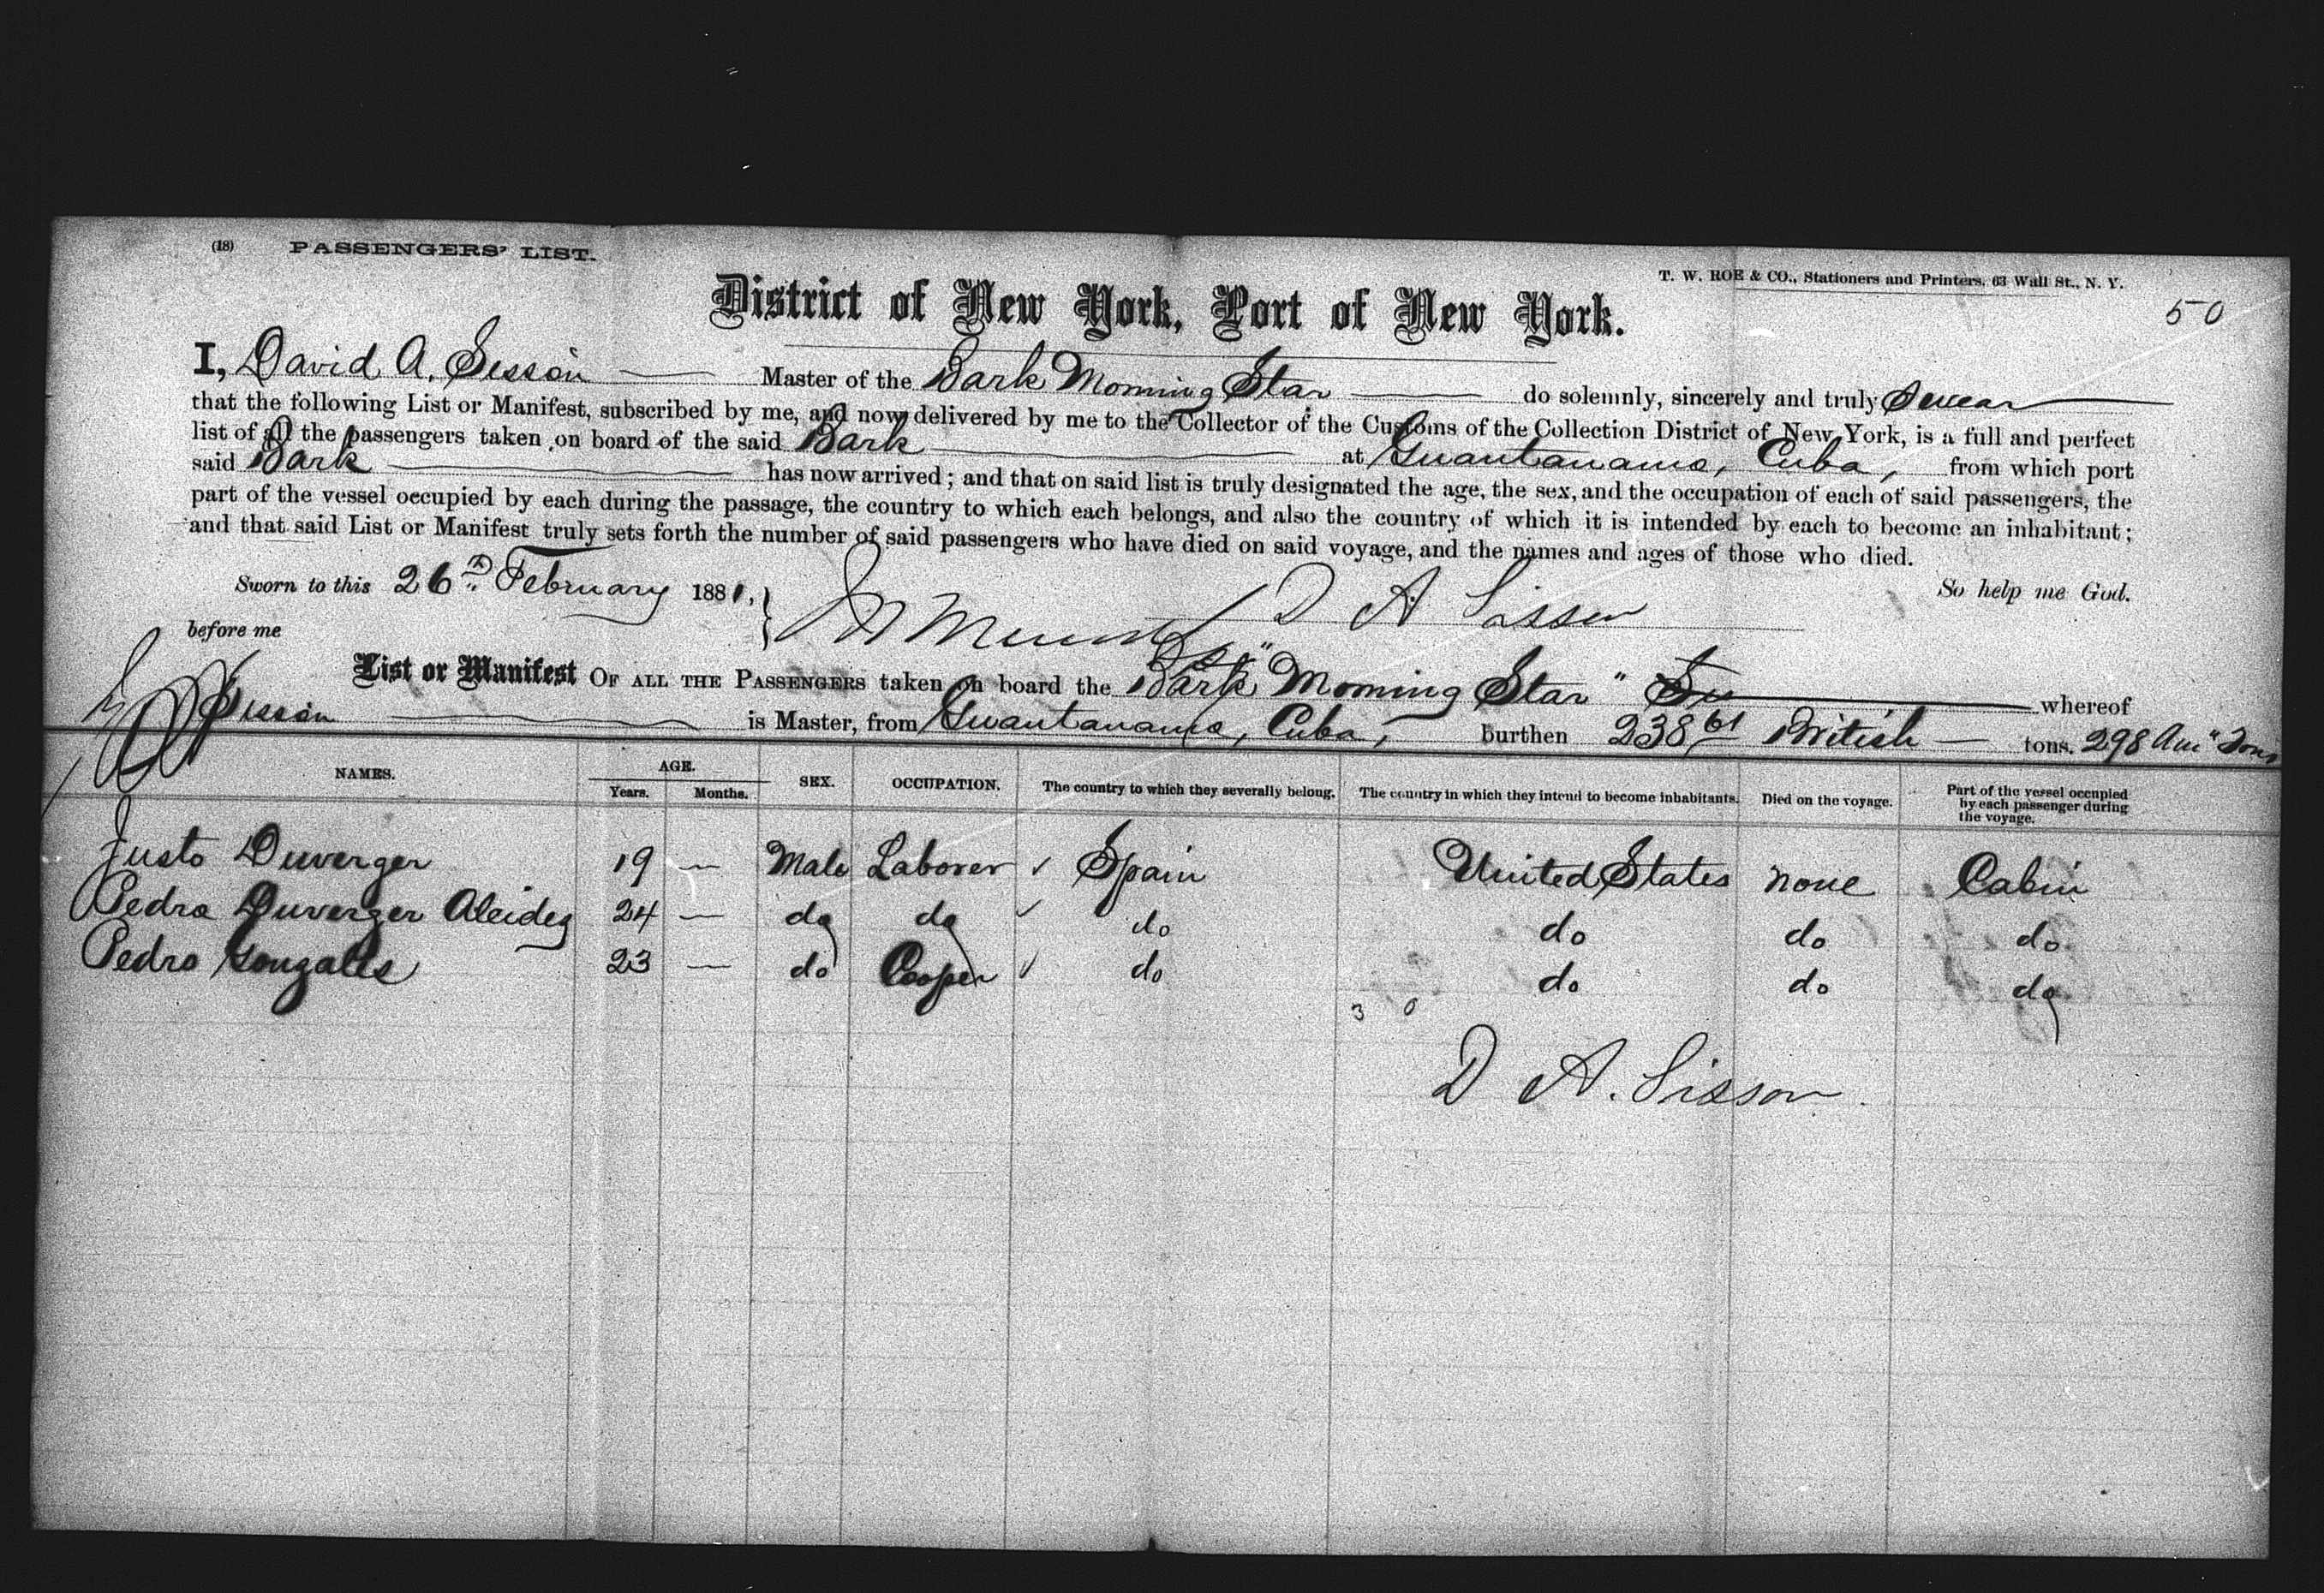 (18) PASSENGERS' LIST.
T. W. ROE & CO., Stationers and Printers, 63 Wall St., N. Y.
50
District of New York, Port of New York.
I, David A. Sisson Master of the Bark Morning Star do solemnly, sincerely and truly Swear
that the following List or Manifest, subscribed by me, and now delivered by me to the Collector of the Customs of the Collection District of New York, is a full and perfect
list of all the passengers taken on board of the said Bark at Guantanamo, Cuba, from which port
said Bark has now arrived; and that on said list is truly designated the age, the sex, and the occupation of each of said passengers, the
part of the vessel occupied by each during the passage, the country to which each belongs, and also the country of which it is intended by each to become an inhabitant;
and that said List or Manifest truly sets forth the number of said passengers who have died on said voyage, and the names and ages of those who died.
Sworn to this 26th February 1881, So help me God.
before me D A Sisson
List or Manifest OF ALL THE PASSENGERS taken on board the Bark "Morning Star" whereof
Sisson is Master, from Guantanamo, Cuba, burthen 238 61 British tons. 298 Am" Tons
NAMES. AGE. Years. Months. SEX. OCCUPATION. The country to which they severally belong. The country in which they intend to become inhabitants. Died on the voyage. Part of the vessel occupied by each passenger during the voyage.
Justo Duverger 19 — Male Laborer ✓ Spain United States none Cabin
Pedro Duverger Alcides 24 — do do ✓ do do do do
Pedro Gonzales 23 — do Cooper ✓ do do do do
3 0
D A. Sisson